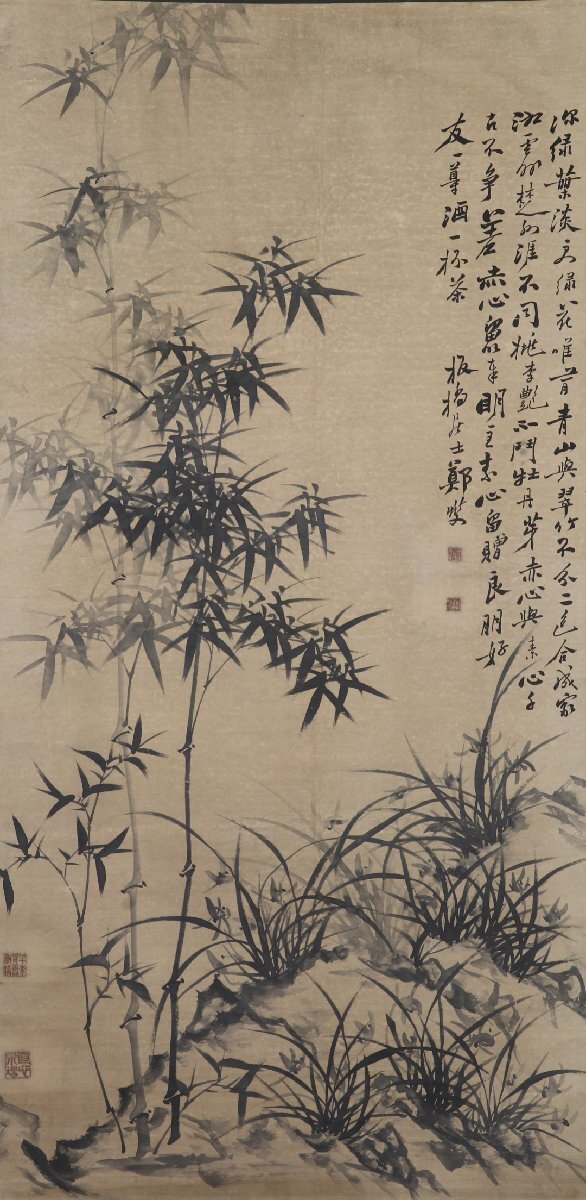 深绿叶淡更绿花唯有青山與翠竹不分二色合成家
湘雲外楚江涯不同桃李艷不鬥牡丹芽赤心與素心千
古不争差赤心留奉明主素心留贈良朋好
友一尊酒一杯茶
板橋居士鄭燮